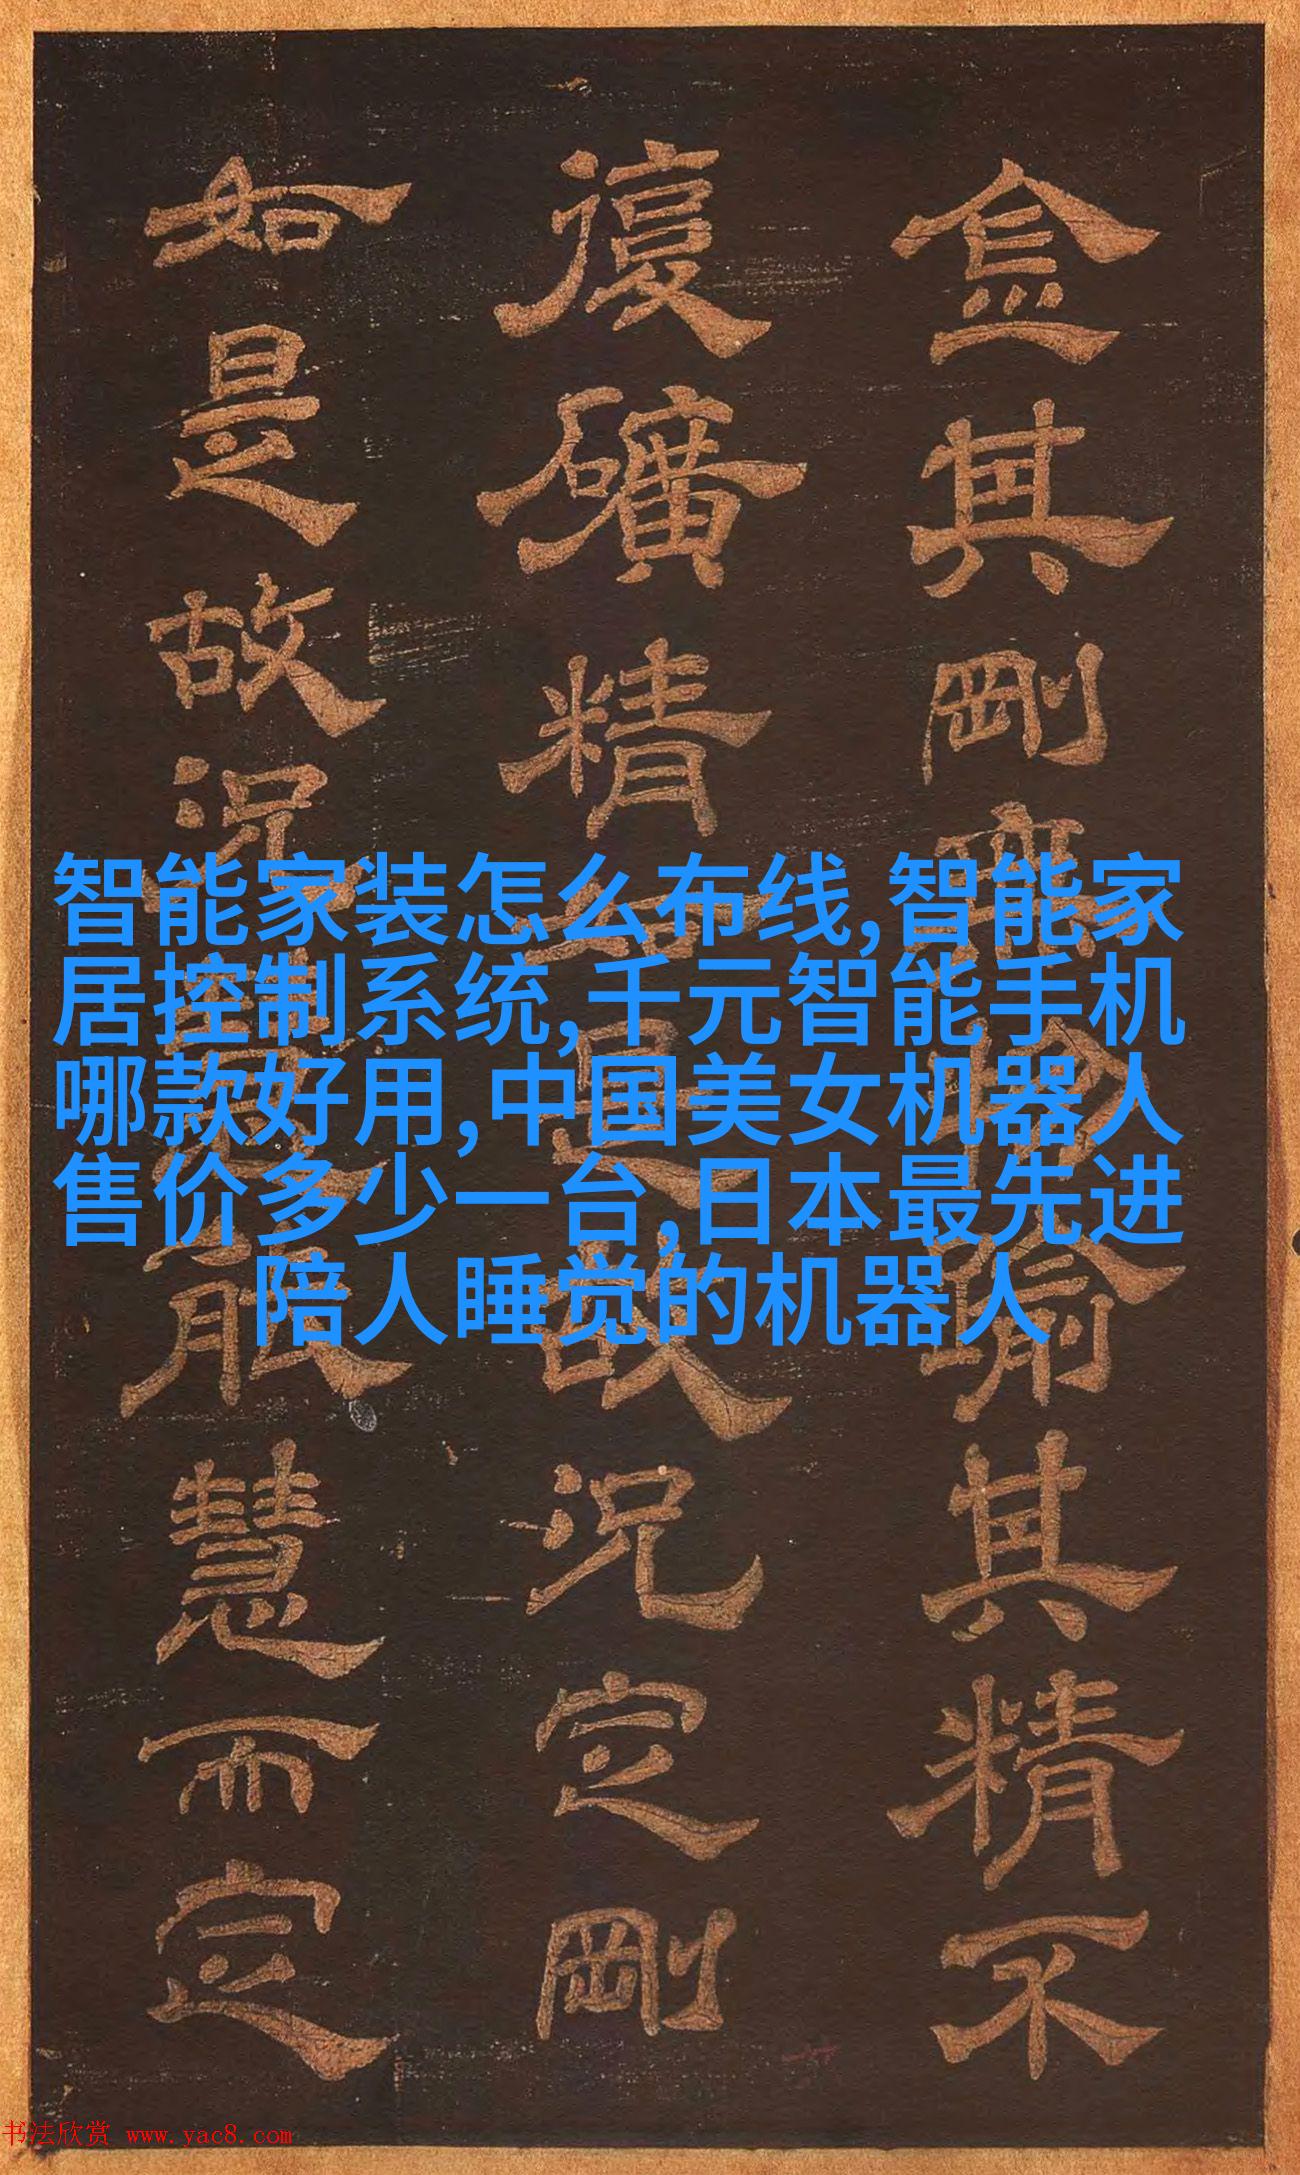 金其剛喻其精不
復礦精是故況定剛
如是故況能慧而定
智能家装怎么布线,智能家
居控制系统,千元智能手机
哪款好用,中国美女机器人
售价多少一台,日本最先进
陪人睡觉的机器人
书法欣赏 www.yac8.com